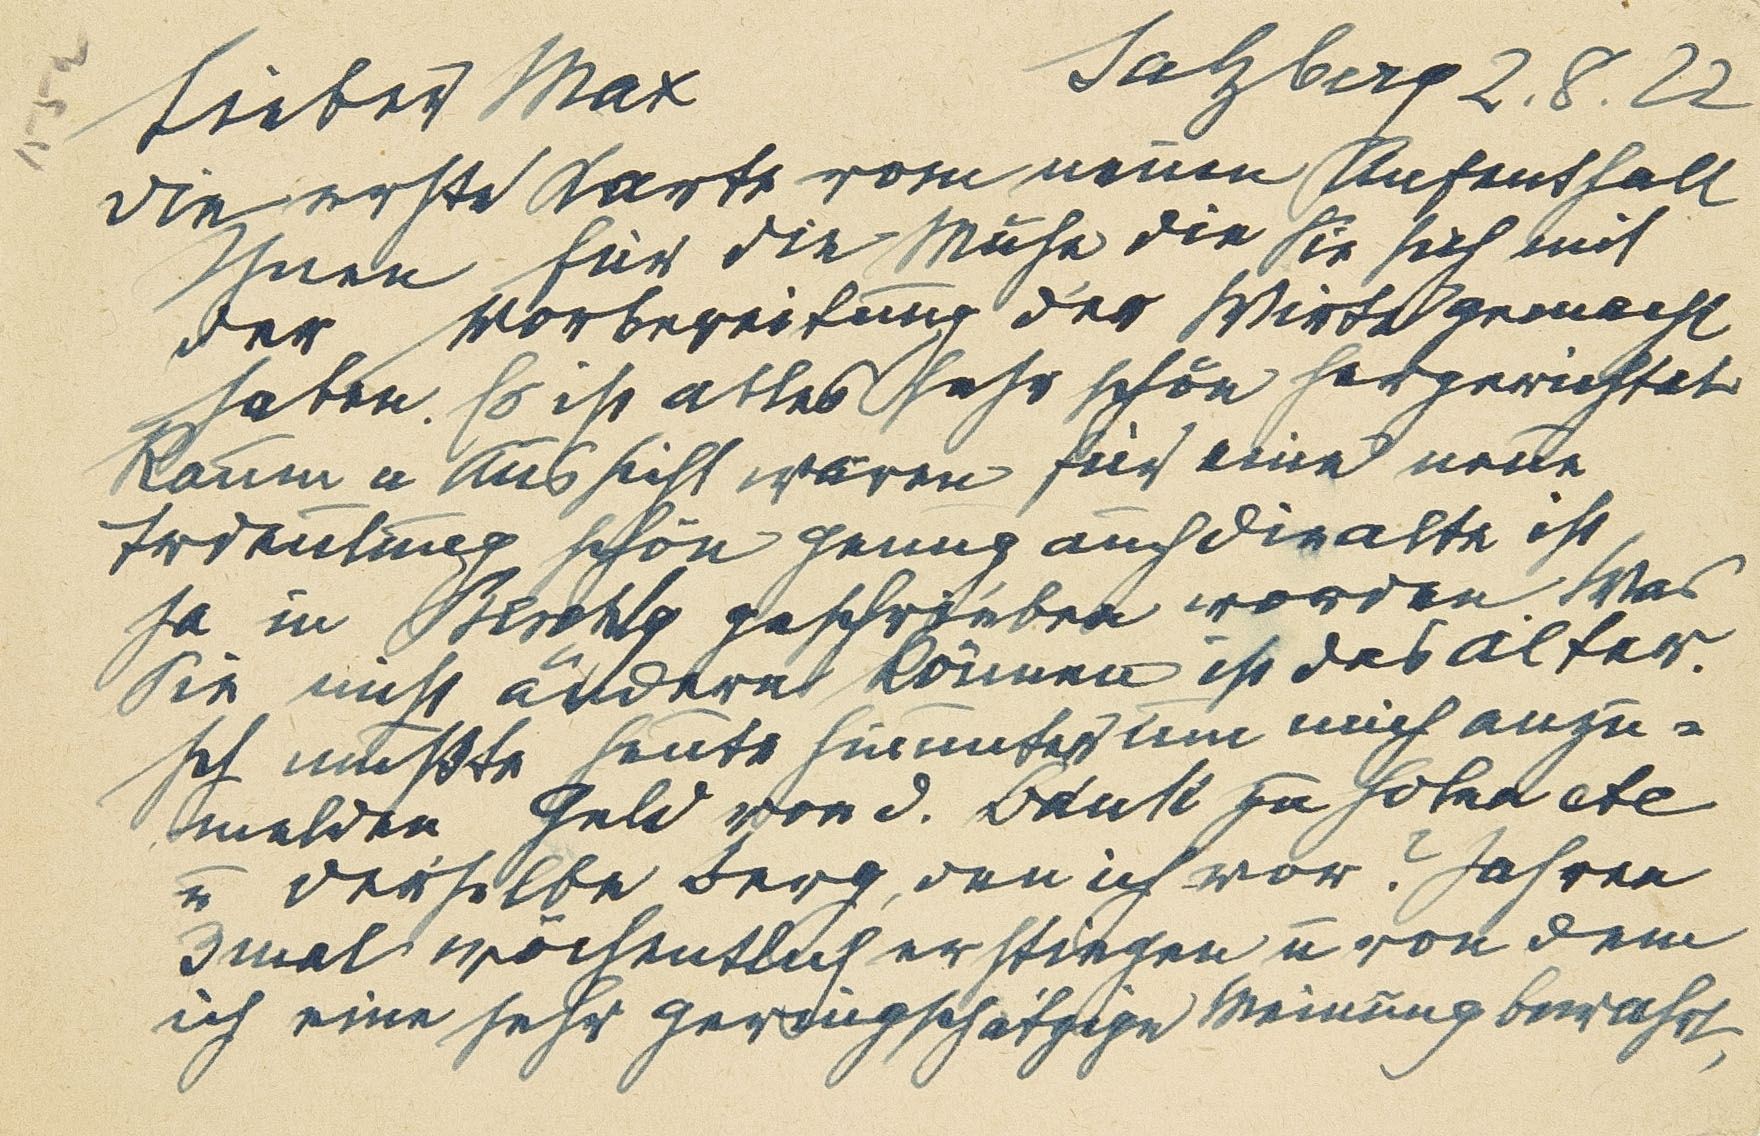 Salzberg 2.8.22
Lieber Max
die erste Karte vom neuen Aufenthalt
Ihnen für die Mühe die Sie sich mit
der Vorbereitung der Wirte gemacht
haben. Es ist alles sehr schön hergerichtet
Raum u Aussicht wären für eine neue
schön genug auch die alte ist
ja in Berchtg geschrieben worden. Was
Sie nicht ändern können ist das Alter.
Ich mußte heute hinunter um mich anzu-
melden Geld von d. Bank zu holen etc
u derselbe Berg, den ich vor ? Jahren
3mal wöchentlich erstiegen u von dem
ich eine sehr geringschätzige Meinung bewahrt,